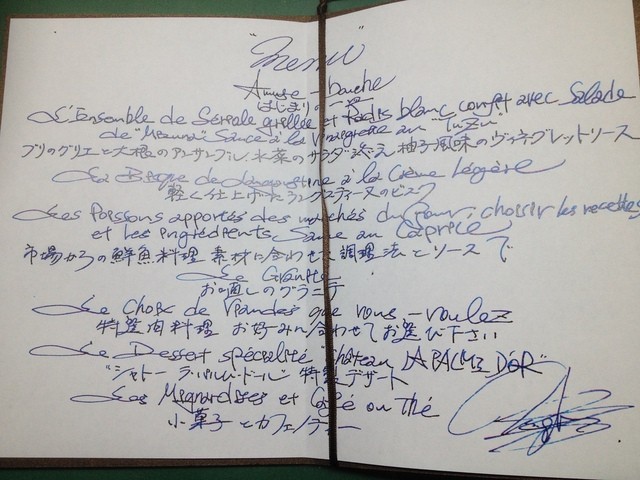 "Menu"
Amuse-bouche
はじまりの一皿
L'Ensemble de Sériole grillée et Radis blanc confit avec Salade
de "Mizuna" Sauce à la Vinaigrette au "Yuzu"
ブリのグリエと大根のアンサンブル 水菜のサラダ添え 柚子風味のヴィネグレットソース
La Bisque de Langoustine à la Crème légère
軽く仕上げたラングスティーヌのビスク
Les Poissons apportés des marchés du jour, choisir les recettes
et les ingrédients, Sauce au Caprice
市場からの鮮魚料理 素材に合わせた調理法とソースで
Le Granité
お口直しのグラニテ
Le Choix de Viandes que vous-voulez
特選肉料理 お好みに合わせてお選び下さい
Le Dessert spécialité "Château LA PALME D'OR"
"シャトーラ・パルム・ドール" 特製デザート
Les Mignardises et Café ou Thé
小菓子とカフェ/ティー